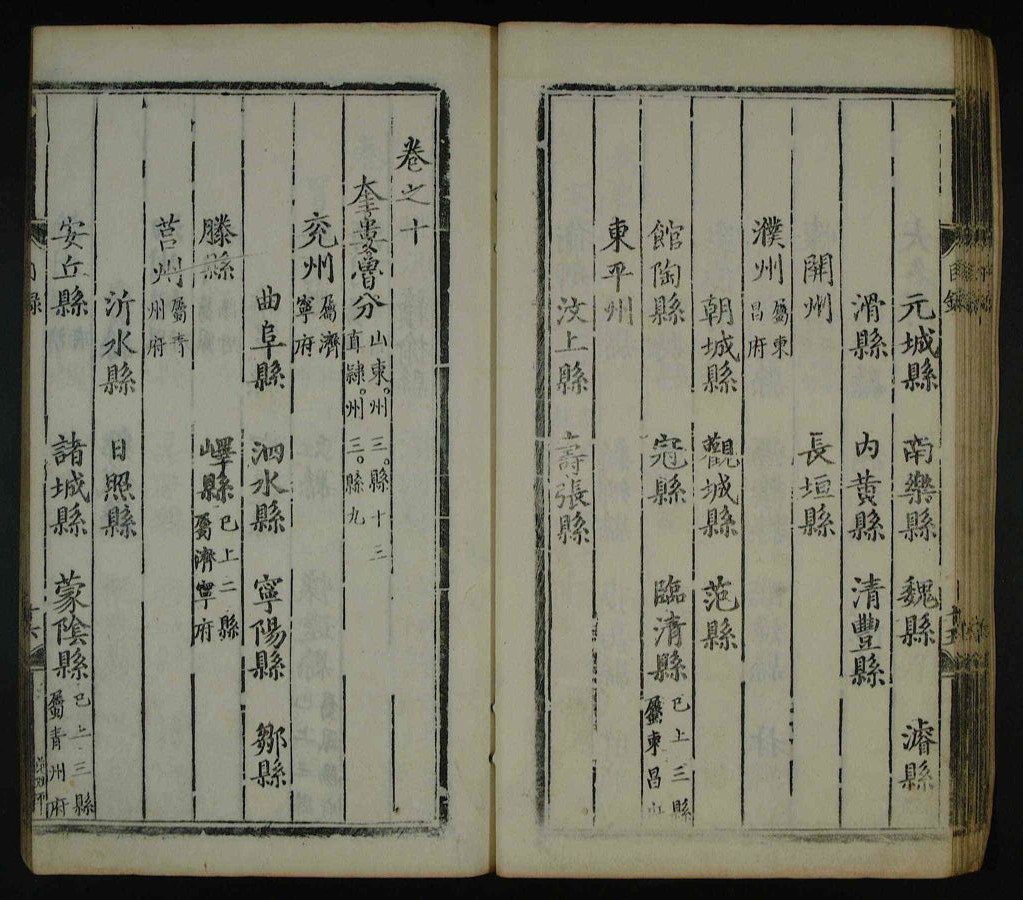 元城縣 南樂縣 魏縣 濬縣
滑縣 內黄縣 清豐縣
開州 長垣縣
濮州 屬東昌府
朝城縣 觀城縣 范縣
館陶縣 冠縣 臨清縣 已上三縣屬東昌
東平州
汶上縣 壽張縣
卷之十
奎婁魯分 山東。州三。縣十三 直隸。州三。縣九
兖州 屬濟寧府
曲阜縣 泗水縣 寧陽縣 鄒縣
滕縣 嶧縣 已上二縣屬濟寧府
莒州 屬青州府
沂水縣 日照縣
安丘縣 諸城縣 蒙陰縣 已上三縣屬青州府
目録